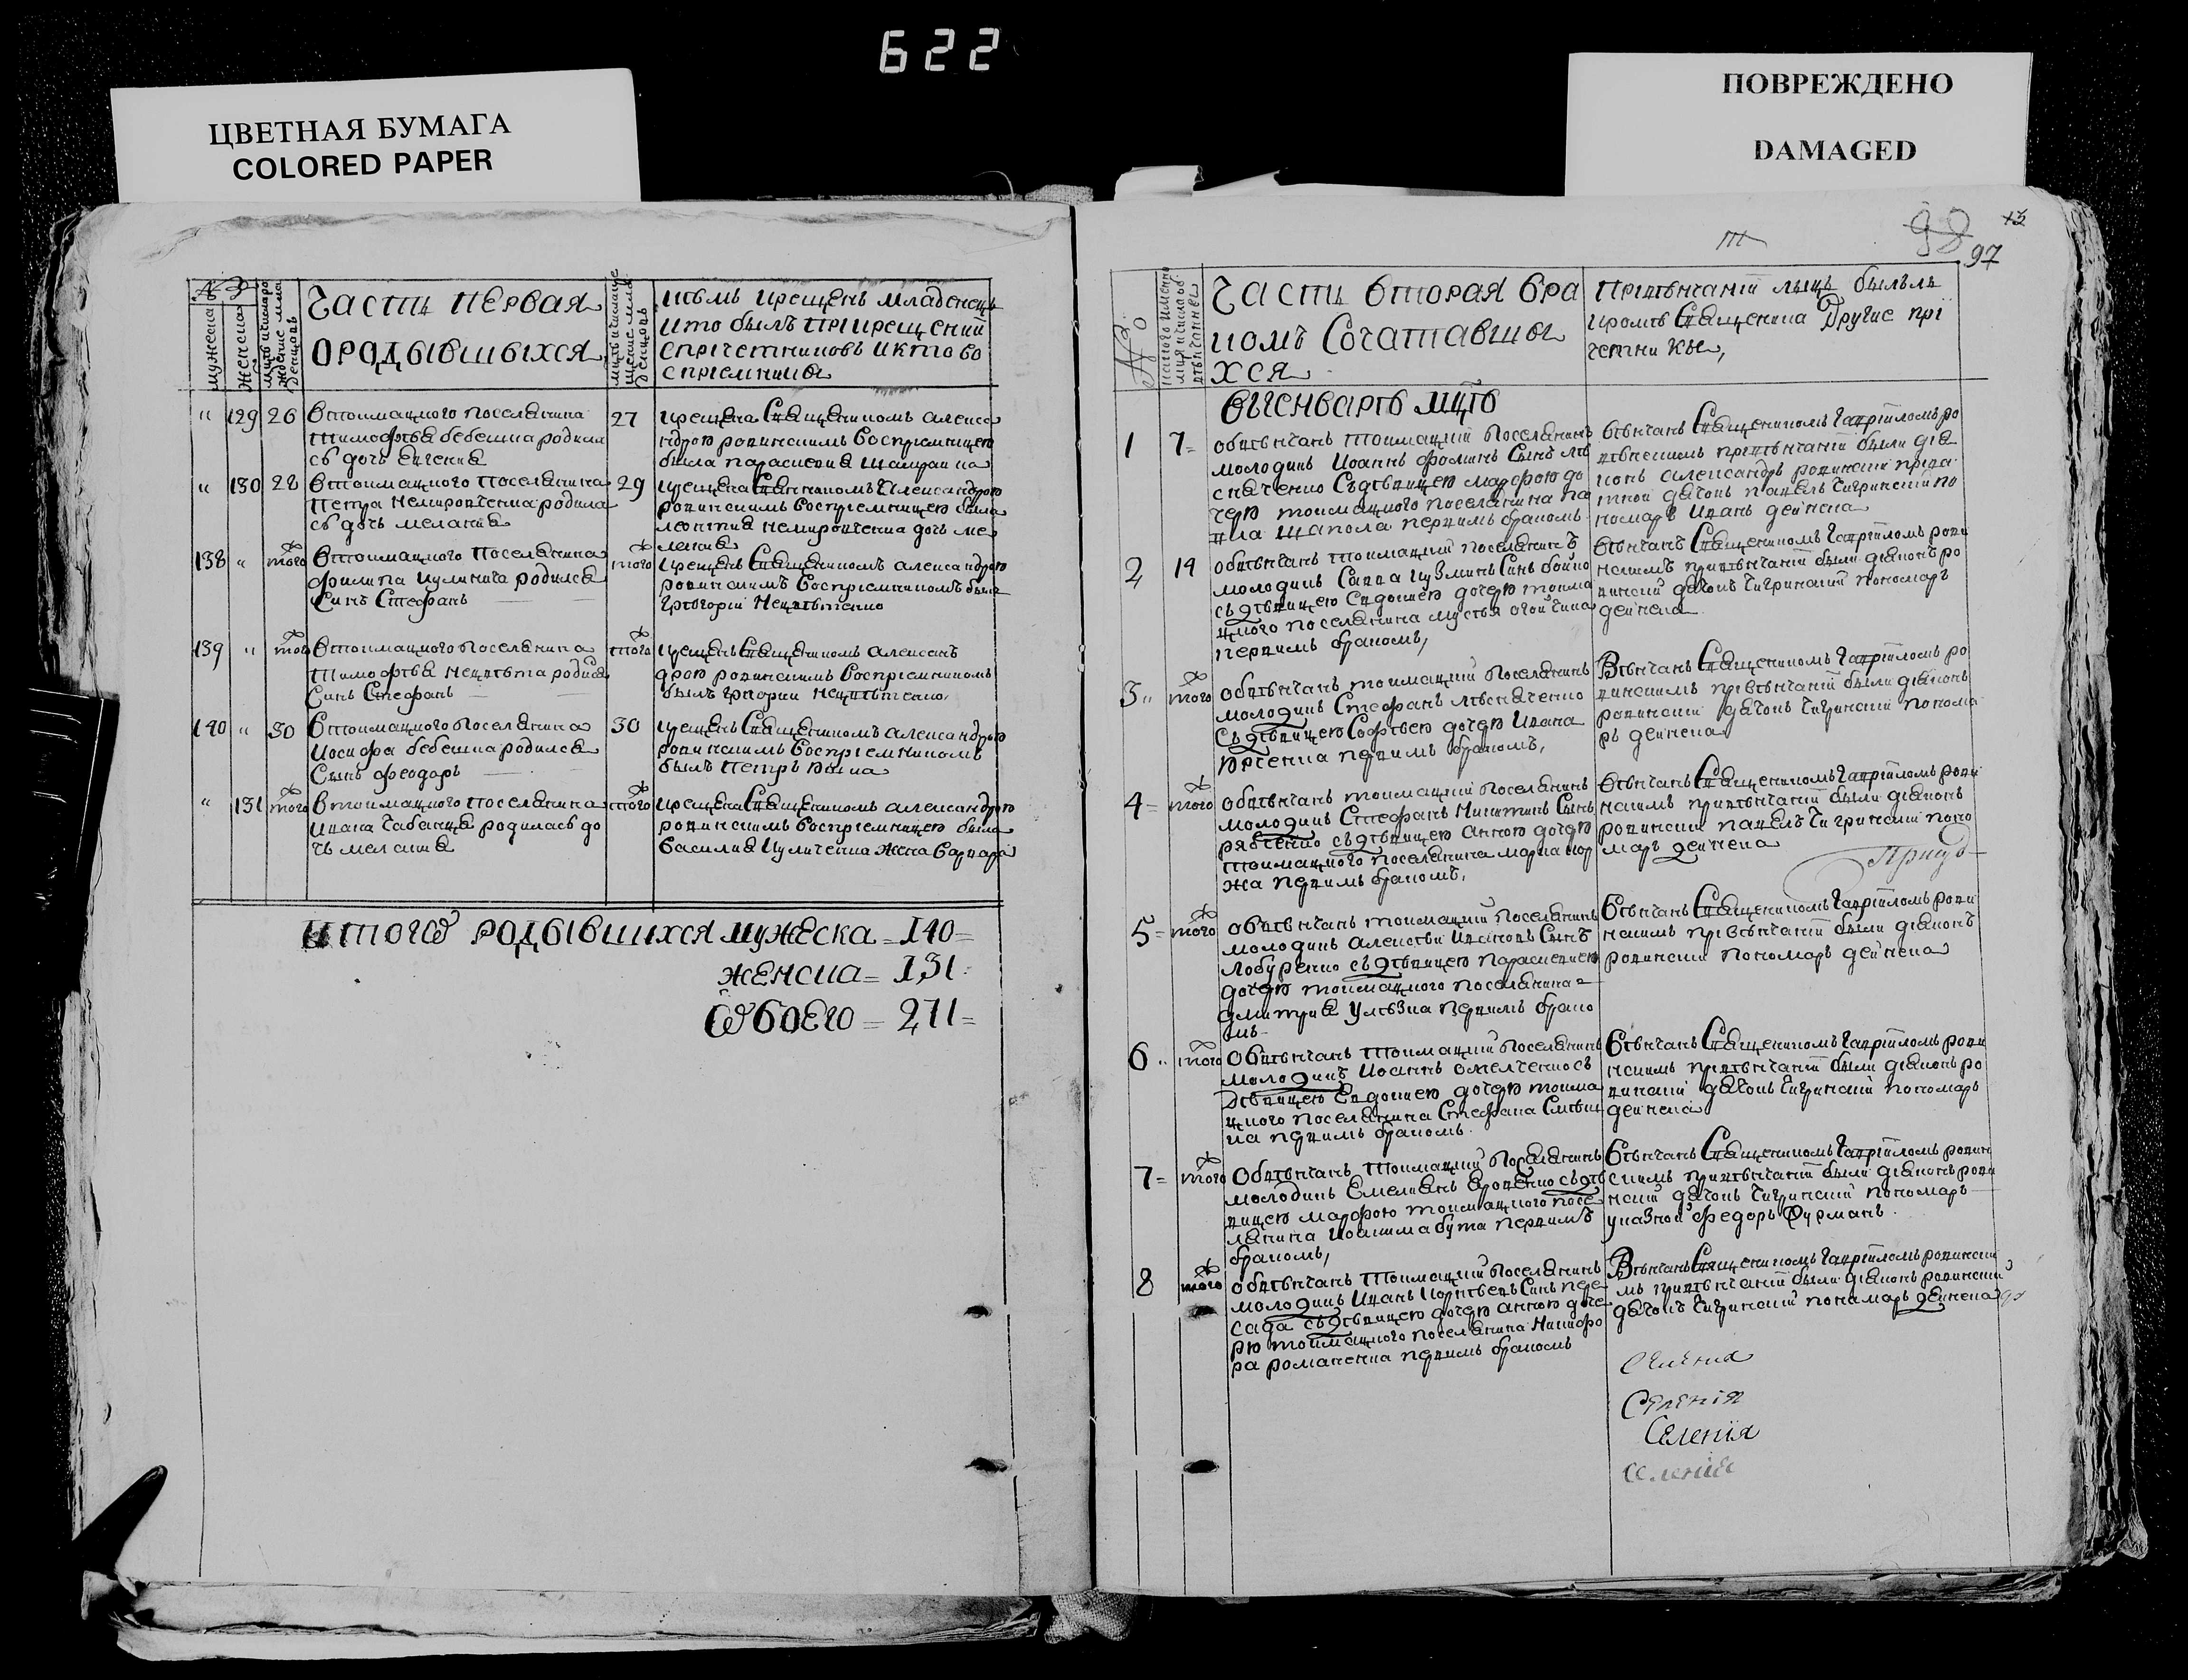 622
ЦВЕТНАЯ БУМАГА
COLORED PAPER
ПОВРЕЖДЕНО
DAMAGED
№
мужеска
женска
Часть первая
ородывшыхся
кѣмъ крещенъ младенецъ
икто былъ при крещений
спричетниковъ икто во
спрiемники
" 129 26
втокмацкого поселянина
Тимофѣя бебешка родила
сь дочь евгения
27
крещена Священникомъ алекса
ндрою ровинскимъ воспрiемницею
была параскевия
" 130 28
втокмацкого поселянина
Петра Немировченка родила
сь дочь мелания
29
крещена Священникомъ Александрою
ровинскимъ воспрiемницею была
леонтия немировченка дочь ме
лания
138 " того
втокмацкого поселянина
филипа кулинича родился
Синъ Стефанъ
того
крещенъ Священникомъ александрою
ровинскимъ воспрiемникомъ былъ
григорiй Нецвѣтенко
139 " того
втокмацкого поселянина
Тимофѣя нецвѣта родился
Синъ Стефанъ
того
крещенъ Священникомъ алексан
дрою ровинскимъ воспрiемникомъ
былъ григорий нецвѣтенко
140 " 30
втокмацкого поселянина
Иосифа бебешка родился
Сынъ феодоръ
30
крещенъ Священникомъ александрою
ровинскимъ воспрiемникомъ
былъ Петръ
" 131 того
втокмацкого поселянина
Ивана Чабанца родилась до
чь мелания
того
крещена Священникомъ александрою
ровинскимъ воспрiемницею была
василия куличенка жена варвара
итого родывшихся мужеска = 140 =
женска = 131
Обоего = 271 =
98
97
№
Часть вторая бра
комъ Сочатавшы
хся
Привѣнчанiй лыцъ былъли
кромѣ Священника Другие при
четники,
выенварѣ мцѣ
1 7 =
обвѣнчанъ токмацкий поселянинъ
молодикъ Иоаннъ фоминъ Сынъ
съдѣвицею марфою до
черю токмацкого поселянина па
вла первимъ бракомъ
вѣнчанъ Священникомъ гаврiиломъ ро
винскимъ привѣнчанiй были дiа
конъ александръ ровинский
дячокъ павелъ чигринский по
номаръ Иванъ дейнека
2 14
обвѣнчанъ токмацкий поселянинъ
молодикъ Савва кузминъ Синъ бойко
съдѣвицею Евдокиею дочерю токма
цкого поселянина
первимъ бракомъ,
вѣнчанъ Священникомъ гаврiиломъ рови
нскимъ привѣнчанiй были дiаконъ ро
винский дячокъ чигринский пономаръ
дейнека
3 " того
обвѣнчанъ токмацкий поселянинъ
молодикъ Стефанъ
съдѣвицею Софиею дочерю Ивана
первимъ бракомъ,
Вѣнчанъ Священникомъ гаврiиломъ ро
винскимъ привѣнчанiй были дiаконъ
ровинский дячокъ чигринский понома
ръ дейнека
4 = того
обвѣнчанъ токмацкий поселянинъ
молодикъ Стефанъ Никитинъ Сынъ
рябченко съдѣвицею анною дочерю
токмацкого поселянина марка кор
жа первимъ бракомъ,
вѣнчанъ Священникомъ гаврiиломъ рови
нскимъ привѣнчанiй были дiаконъ
ровинский павелъ чигринский поно
маръ дейнека
5 = того
обвѣнчанъ токмацкий поселянинъ
молодикъ алексѣй Ивановъ Сынъ
лобуренко съдѣвицею параскевиею
дочерю токмацкого поселянина
дмитрия первимъ брако
мъ
вѣнчанъ Священникомъ гаврiиломъ рови
нскимъ привѣнчанiй были дiаконъ
ровинский пономаръ дейнека
6 " того
обвѣнчанъ токмацкий поселянинъ
молодикъ Иоаннъ омелченко съ
дѣвицею Евдокиею дочерю токма
цкого поселянина Стефана
первимъ бракомъ
вѣнчанъ Священникомъ гаврiиломъ рови
нскимъ привѣнчанiй были дiаконъ ро
винский дячокъ чигринский пономаръ
дейнека
7 = того
обвѣнчанъ токмацкий поселянинъ
молодикъ Емелианъ съдѣ
вицею марфою токмацкого посе
лянина Иоакима бута первимъ
бракомъ,
вѣнчанъ Священникомъ гаврiиломъ ровин
скимъ привѣнчанiй были дiаконъ рови
нский дячокъ чигринский пономаръ
указной федоръ фурманъ
8 того
обвѣнчанъ токмацкий поселянинъ
молодикъ Иванъ Корнѣевъ Синъ пере
сада съдѣвицею дочерю анною доче
рю токмацкого поселянина Никифо
ра романенка первимъ бракомъ
Вѣнчанъ Священникомъ гаврiиломъ ровински
мъ привѣнчанiй были дiаконъ ровинский
дячокъ чигринский пономаръ дейнека
Селения
Селенiя
Селенiя
Селенiя